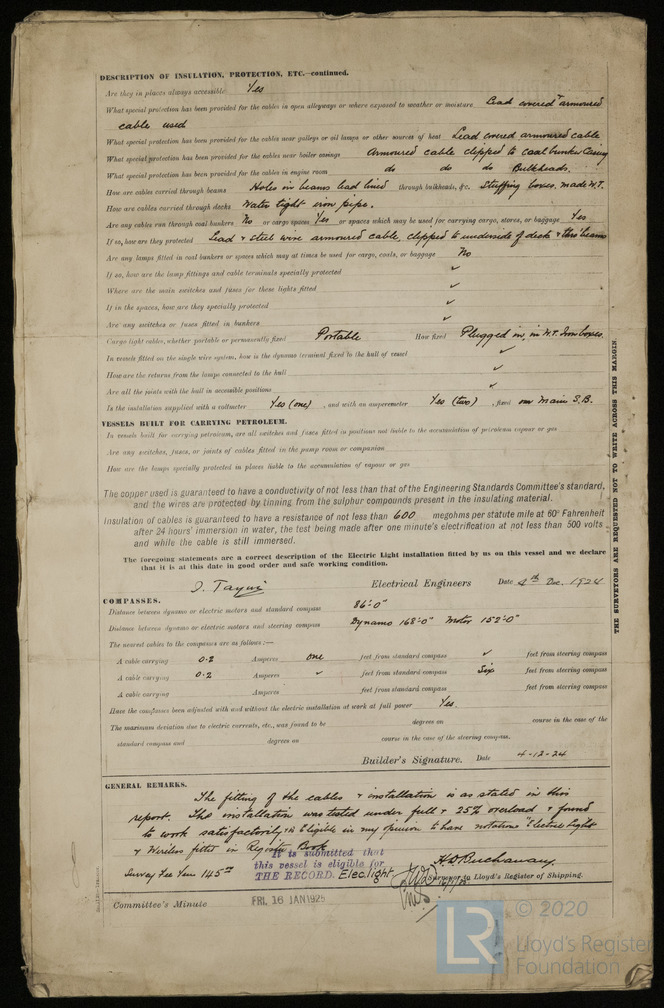 DESCRIPTION OF INSULATION, PROTECTION, ETC.—continued.
Are they in places always accessible Yes
What special protection has been provided for the cables in open alleyways or where exposed to weather or moisture Lead covered armoured
cable used
What special protection has been provided for the cables near galleys or oil lamps or other sources of heat Lead covered armoured cable
What special protection has been provided for the cables near boiler casings Armoured cable clipped to coal bunker casing
What special protection has been provided for the cables in engine room do do do Bulkheads.
How are cables carried through beams Holes in beams lead lined through bulkheads, &c. Stuffing boxes. made W.T.
How are cables carried through decks Water tight iron pipe.
Are any cables run through coal bunkers No or cargo spaces Yes or spaces which may be used for carrying cargo, stores, or baggage Yes
If so, how are they protected Lead & steel wire armoured cable, clipped to underside of deck & thro beams
Are any lamps fitted in coal bunkers or spaces which may at times be used for cargo, coals, or baggage No
If so, how are the lamp fittings and cable terminals specially protected ✓
Where are the main switches and fuses for these lights fitted ✓
If in the spaces, how are they specially protected ✓
Are any switches or fuses fitted in bunkers ✓
Cargo light cables, whether portable or permanently fixed Portable How fixed Plugged in, in W.T. Iron boxes.
In vessels fitted on the single wire system, how is the dynamo terminal fixed to the hull of vessel ✓
How are the returns from the lamps connected to the hull ✓
Are all the joints with the hull in accessible positions ✓
Is the installation supplied with a voltmeter Yes (one) , and with an amperemeter Yes (two) , fixed on main S.B.
VESSELS BUILT FOR CARRYING PETROLEUM.
In vessels built for carrying petroleum, are all switches and fuses fitted in positions not liable to the accumulation of petroleum vapour or gas
Are any switches, fuses, or joints of cables fitted in the pump room or companion
How are the lamps specially protected in places liable to the accumulation of vapour or gas
The copper used is guaranteed to have a conductivity of not less than that of the Engineering Standards Committee's standard,
and the wires are protected by tinning from the sulphur compounds present in the insulating material.
Insulation of cables is guaranteed to have a resistance of not less than 600 megohms per statute mile at 60° Fahrenheit
after 24 hours' immersion in water, the test being made after one minute's electrification at not less than 500 volts
and while the cable is still immersed.
The foregoing statements are a correct description of the Electric Light installation fitted by us on this vessel and we declare
that it is at this date in good order and safe working condition.
Electrical Engineers Date 4th Dec. 1924
COMPASSES.
Distance between dynamo or electric motors and standard compass 86'-0"
Distance between dynamo or electric motors and steering compass Dynamo 168'-0" Motor 152'-0"
The nearest cables to the compasses are as follows:—
A cable carrying 0.2 Amperes one feet from standard compass ✓ feet from steering compass
A cable carrying 0.2 Amperes ✓ feet from standard compass Six feet from steering compass
A cable carrying Amperes feet from standard compass feet from steering compass
Have the compasses been adjusted with and without the electric installation at work at full power Yes.
The maximum deviation due to electric currents, etc., was found to be degrees on course in the case of the
standard compass and degrees on course in the case of the steering compass.
Builder's Signature. Date 4-12-24
GENERAL REMARKS.
The fitting of the cables & installation is as stated in this
report. The installation was tested under full & 25% overload & found
to work satisfactorily & is eligible in my opinion to have notation "Electric Light
& Wireless fitted in Register Book
It is submitted that
this vessel is eligible for
THE RECORD. Elec. light
Survey Fee Yen 145
H.D. Buchanan
Surveyor to Lloyd's Register of Shipping.
16/1/25
Committee's Minute FRI. 16 JAN 1925
THE SURVEYORS ARE REQUESTED NOT TO WRITE ACROSS THIS MARGIN.
LR
© 2020
Lloyd's Register
Foundation